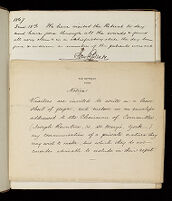 1869
June 18th We have visited the Retreat to day
and have gone through all the wards & found
all very clean & in satisfactory state, the day
THE RETREAT
YORK
Notice.
Visitors are invited to write on a loose
sheet of paper, and enclose in an envelope
addressed to the Chairman of Committee
(Joseph Rowntree, St. Mary's, York,)
any communication of a private nature they
may wish to make but which they do not
consider advisable to include in their report